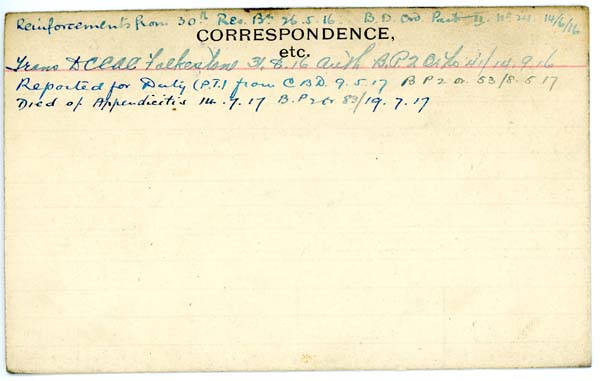 Reinforcements from 30th Res. Bn 26.5.16. B.D. Ord. Part II. No 24. 14/6/16
CORRESPONDENCE,
etc.
Trans D C C A C Folkestone 31.8.16 auth B.P2 O. No 41/14.9.16
Reported for Duty (P.T.) from C.B.D. 9.5.17 B P 2 or. 53/8.5.17
Died of Appendicitis 14.7.17 B.P2 or 83/19.7.17